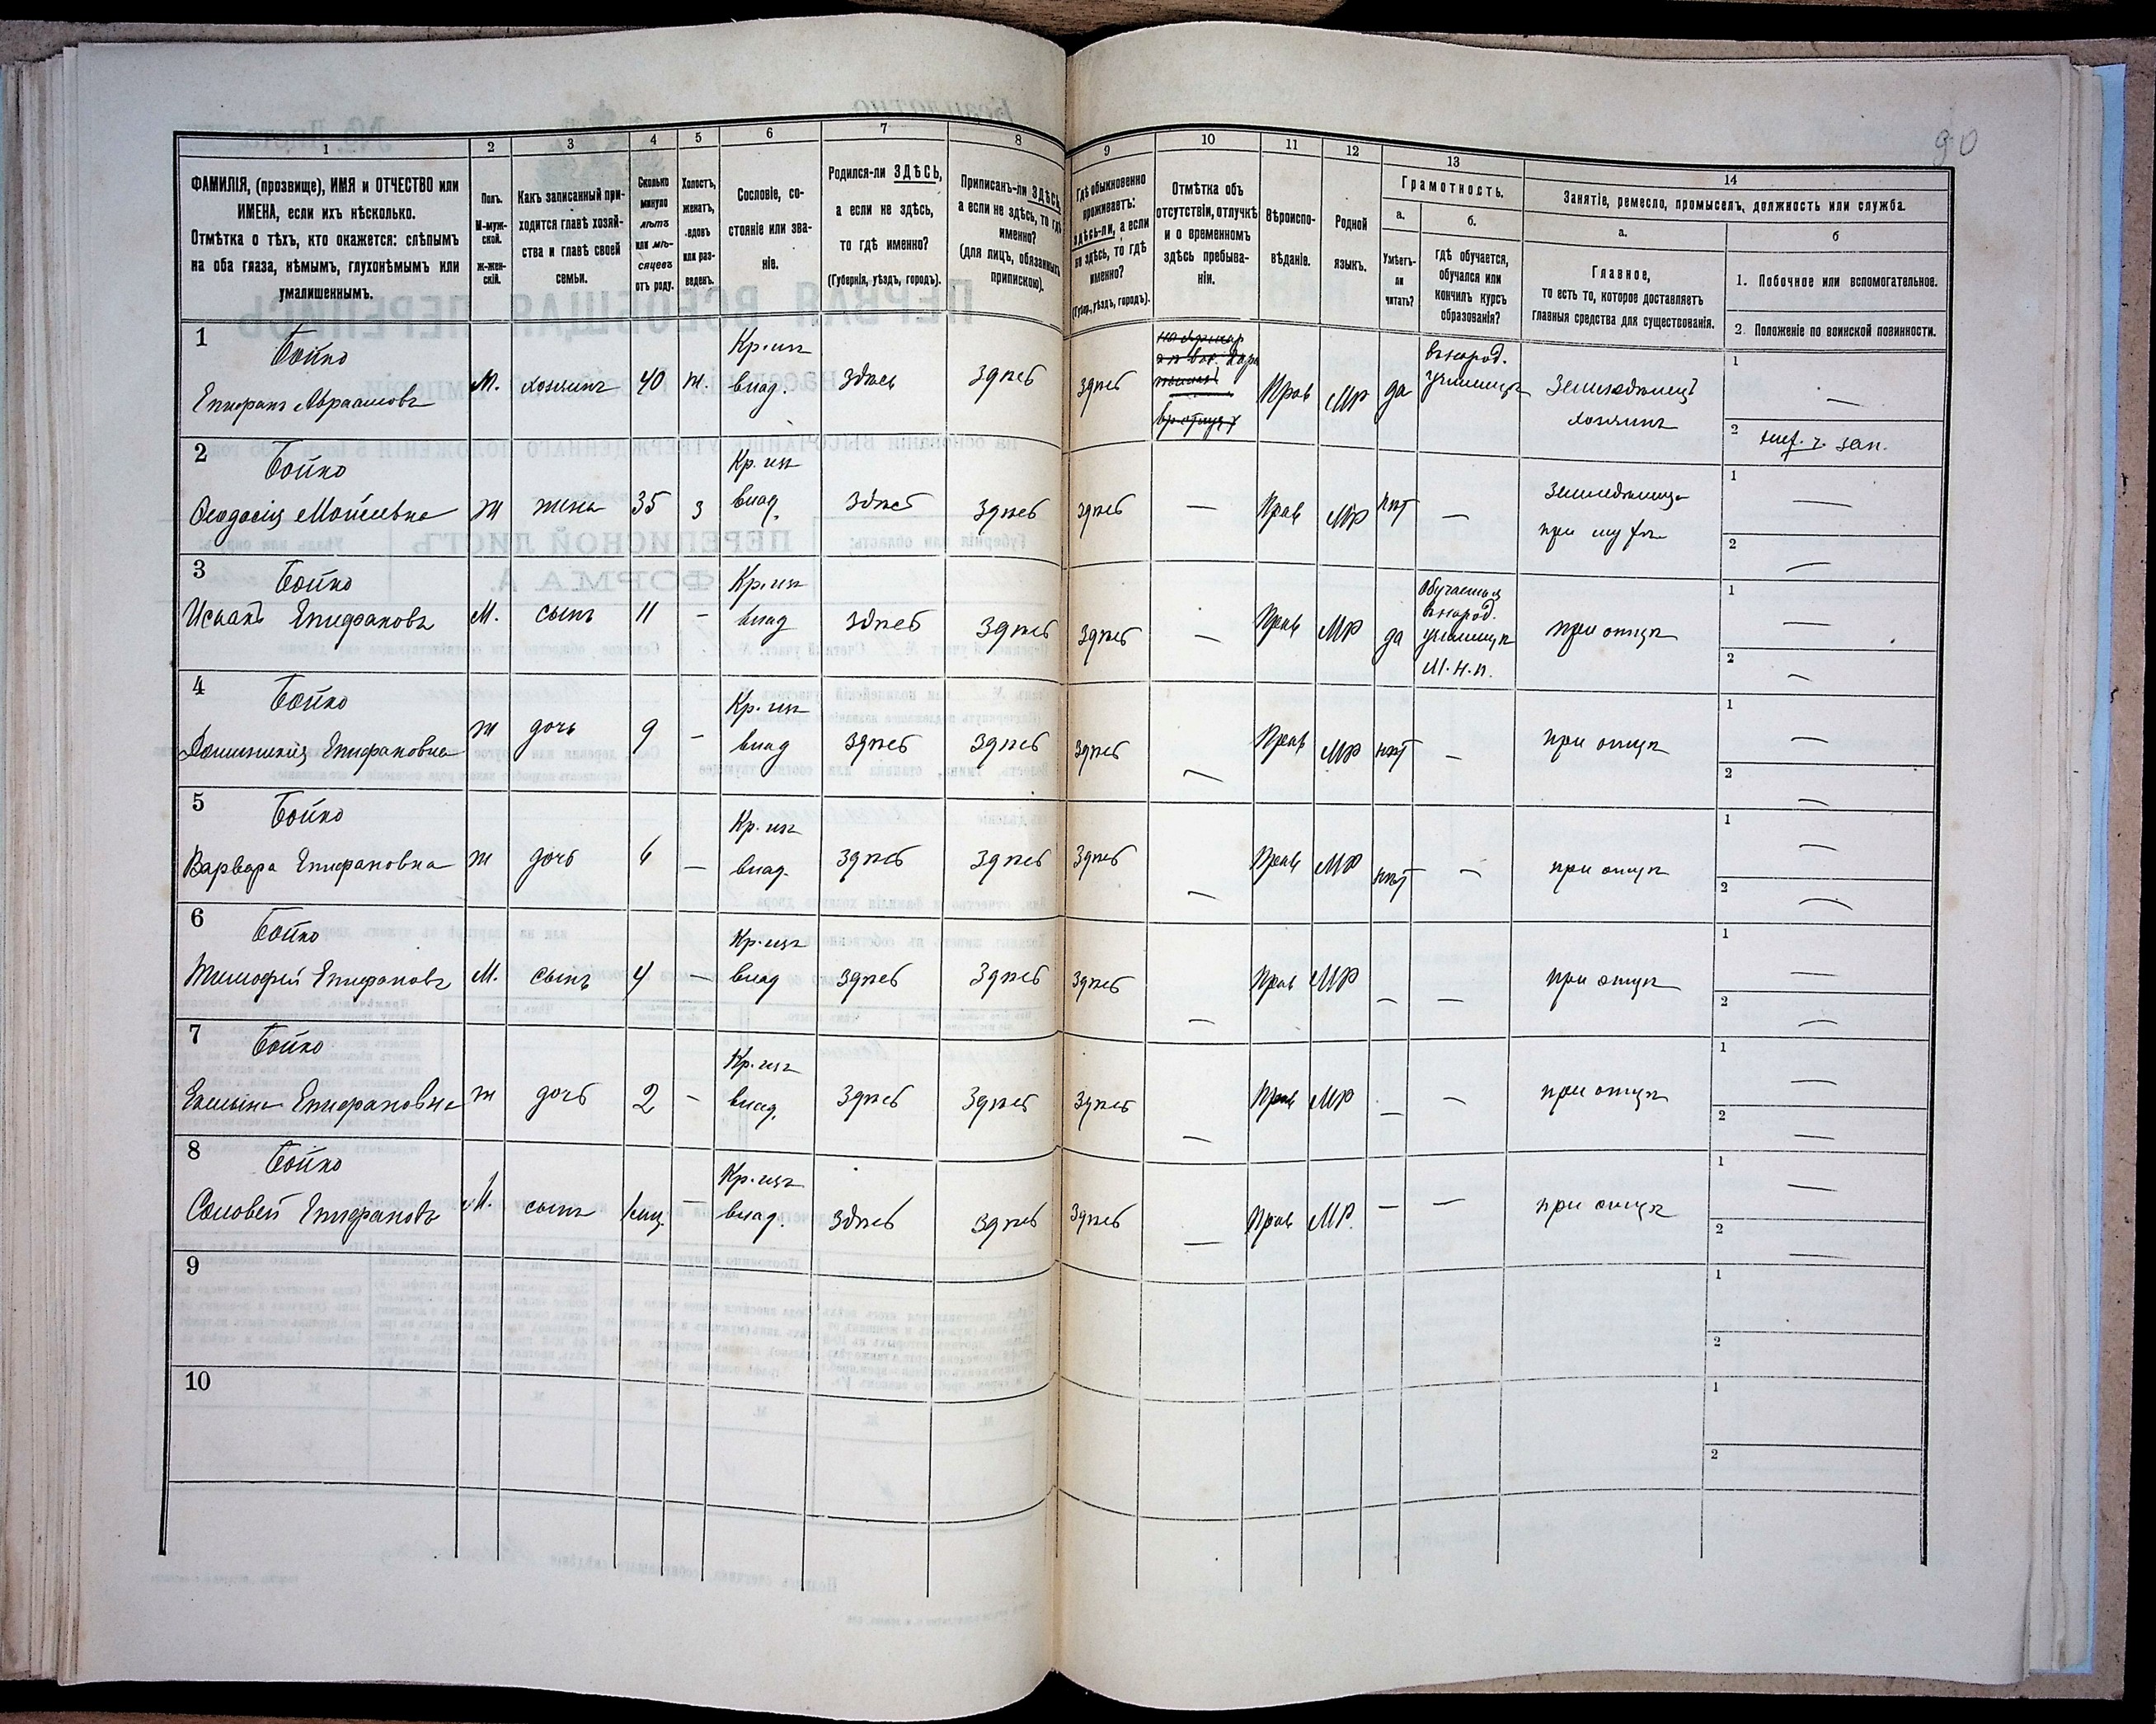 90
1 2 3 4 5 6 7 8 9 10 11 12 13 14
ФАМИЛІЯ, (прозвище), ИМЯ и ОТЧЕСТВО или
ИМЕНА, если ихъ нѣсколько.
Отмѣтка о тѣхъ, кто окажется: слѣпымъ
на оба глаза, нѣмымъ, глухонѣмымъ или
умалишеннымъ.
Полъ.
М-муж-
ской.
Ж-жен-
скій.
Какъ записанный при-
ходится главѣ хозяй-
ства и главѣ своей
семьи.
Сколько
минуло
лѣтъ
или мѣ-
сяцевъ
отъ роду.
Холостъ,
женатъ,
вдовъ
или раз-
веденъ.
Сословіе, со-
стояніе или зва-
ніе.
Родился-ли ЗДѢСЬ,
а если не здѣсь,
то гдѣ именно?
(Губернія, уѣздъ, городъ).
Приписанъ-ли ЗДѢСЬ,
а если не здѣсь, то гдѣ
именно?
(для лицъ, обязанныхъ
припискою).
Гдѣ обыкновенно
проживаетъ:
здѣсь-ли, а если
не здѣсь, то гдѣ
именно?
(Губер., уѣздъ, городъ).
Отмѣтка объ
отсутствіи, отлучкѣ
и о временномъ
здѣсь пребыва-
ніи.
Вѣроиспо-
вѣданіе.
Родной
языкъ.
Грамотность.
а.
Умѣетъ-
ли
читать?
б.
гдѣ обучается,
обучался или
кончилъ курсъ
образованія?
Занятіе, ремесло, промыселъ, должность или служба.
а.
Главное,
то есть то, которое доставляетъ
главныя средства для существованія.
б
1. Побочное или вспомогательное.
2. Положеніе по воинской повинности.
1 Бойко
Епифанъ Авраамовъ М. хозяинъ 40 ж. Кр. изъ
влад. здѣсь здѣсь здѣсь Прав МР да въ народ.
училищѣ Земледѣлецъ
хозяинъ 1 —
2 зап.
2 Бойко
Ѳеодосія Мойсеевна ж жена 35 з Кр. изъ
влад. здѣсь здѣсь здѣсь — Прав МР нѣт — Земледѣлица
при мужѣ 1 —
2 —
3 Бойко
Исаакъ Епифановъ М. сынъ 11 — Кр. изъ
влад здѣсь здѣсь здѣсь — Прав МР да Обучается
въ народ.
училищѣ
М.Н.П. при отцѣ 1 —
2 —
4 Бойко
Домникія Епифановна ж дочь 9 — Кр. изъ
влад здѣсь здѣсь здѣсь — Прав МР нѣт — при отцѣ 1 —
2 —
5 Бойко
Варвара Епифановна ж дочь 6 — Кр. изъ
влад. здѣсь здѣсь здѣсь — Прав МР нѣт — при отцѣ 1 —
2 —
6 Бойко
Тимофей Епифановъ М. сынъ 4 — Кр. изъ
влад здѣсь здѣсь здѣсь — Прав МР — — при отцѣ 1 —
2 —
7 Бойко
Епифановна ж дочь 2 — Кр. изъ
влад. здѣсь здѣсь здѣсь — Прав МР — — при отцѣ 1 —
2 —
8 Бойко
Соловей Епифановъ М. сынъ Кр. изъ
влад. здѣсь здѣсь здѣсь — Прав МР. — — при отцѣ 1 —
2 —
9 1
2
10 1
2